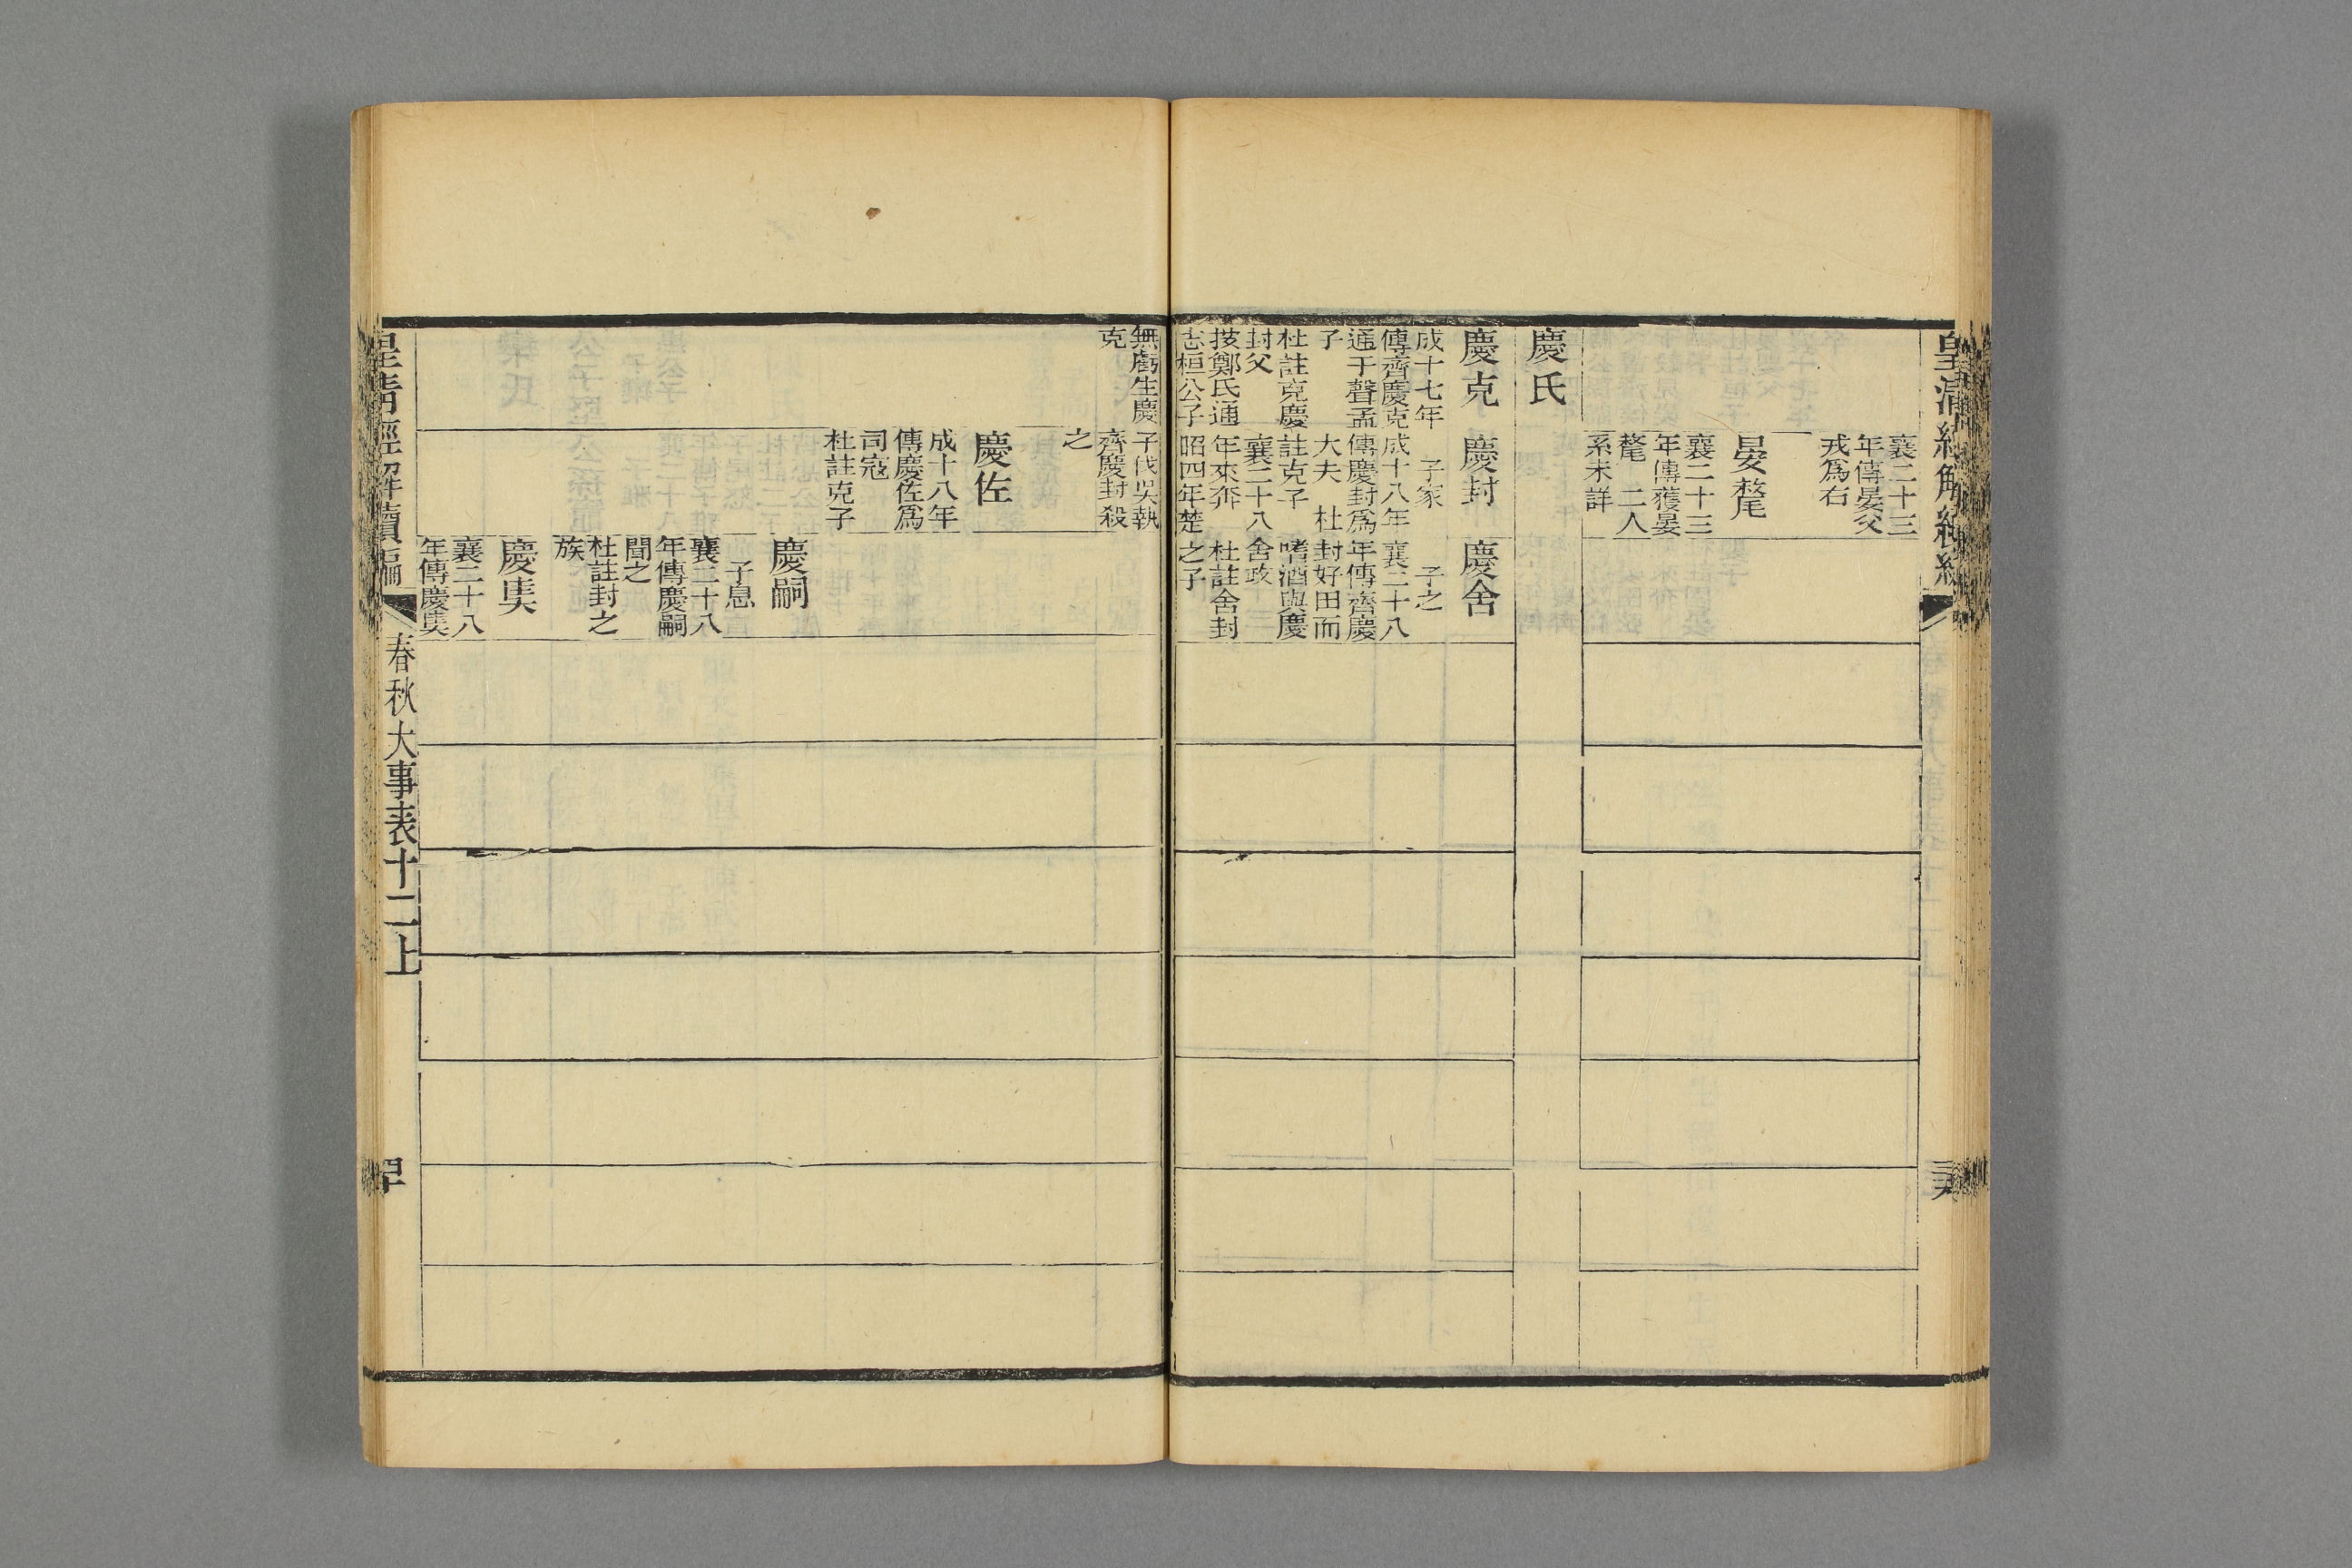 襄二十三
年傳晏父
戎爲右
晏氂
襄二十三
年傳獲晏
氂 二人
系未詳
慶氏
慶克
成十七年
傳齊慶克
通于聲孟
子
杜註克慶
封父
按鄭氏通
志桓公子
無虧生慶
克
慶封
子家
成十八年
傳慶封爲
大夫 杜
註克子
襄二十八
年來奔
昭四年楚
子伐吳執
齊慶封殺
之
慶佐
成十八年
傳慶佐爲
司寇
杜註克子
慶舍
子之
襄二十八
年傳齊慶
封好田而
嗜酒與慶
舍政
杜註舍封
之子
慶嗣
子息
襄二十八
年傳慶嗣
聞之
杜註封之
族
慶𡙇
襄二十八
年傳慶𡙇
皇清經解續編
春秋大事表十二上